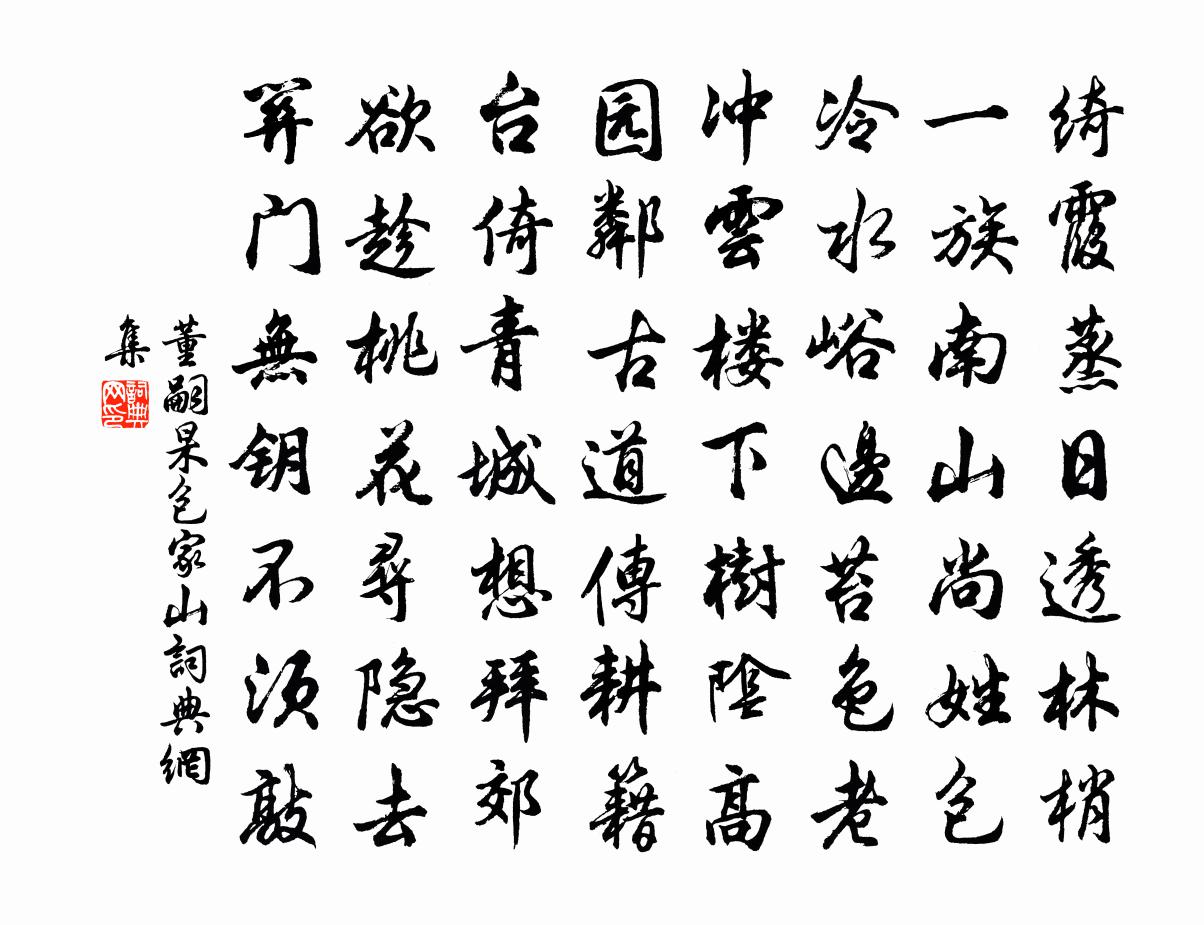 绮霞蒸日透林梢
一族南山尚姓包
冷水峪邊苔色老
冲雲楼下樹陰高
园鄰古道傳耕籍
台倚青城想拜郊
欲趁桃花尋隐去
筭門無钥不须敲
董嗣杲包家山詞典網
集
詞典网印